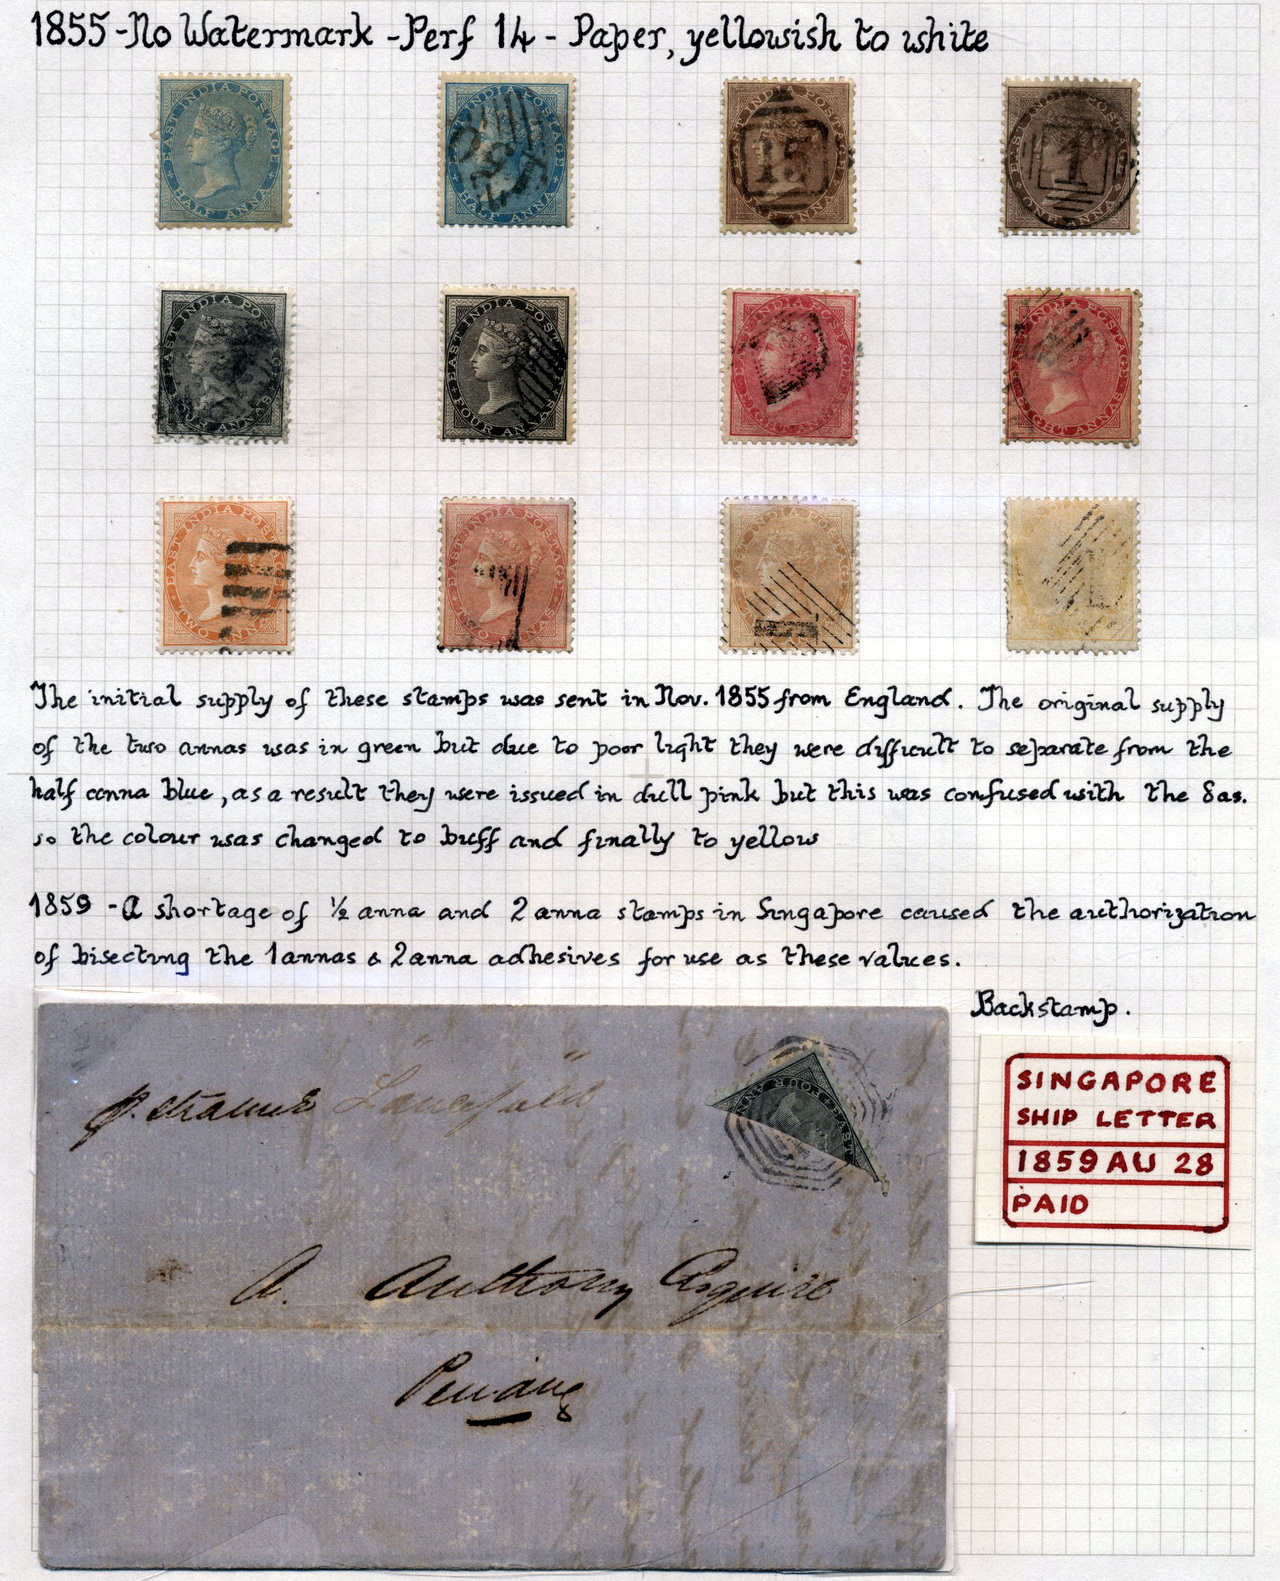 1855-No Watermark -Perf 14 - Paper, yellowish to white
EAST INDIA POSTAGE
HALF ANNA
EAST INDIA POSTAGE
HALF ANNA
15
ONE ANNA
EAST INDIA POSTAGE
1
ONE ANNA
EAST INDIA PO
FOUR ANNAS
EAST INDIA POST
FOUR ANNAS
INDIA POSTAGE
EIGHT ANNAS
EAST INDIA POSTAGE
EIGHT ANNAS
EAST INDIA POSTAGE
TWO ANNAS
EAST INDIA POSTAGE
TWO ANNAS
EAST INDIA POSTAGE
The initial supply of these stamps was sent in Nov. 1855 from England. The original supply
of the two annas was in green but due to poor light they were difficult to separate from the
half anna blue, as a result they were issued in dull pink but this was confused with the 8as.
so the colour was changed to buff and finally to yellow
1859 - A shortage of ½ anna and 2 anna stamps in Singapore caused the authorization
of bisecting the 1annas & 2anna adhesives for use as these values.
Backstamp.
SINGAPORE
SHIP LETTER
1859 AU 28
PAID
p. steamer
FOUR ANN
EAST
A. Anthony Esquire
Penang